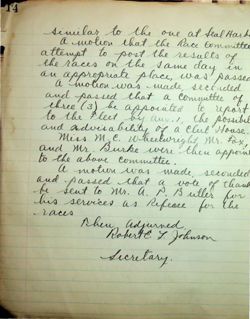 14
similar to the one at Seal Harbor
A motion that the Race Committee
attempt to post the results of
the races on the same day in
an appropriate place, was passed
A motion was made seconded
and passed that a committee of
three (3) be appointed to report
to the Fleet by Aug. 1, the possibility
and advisability of a Club House.
Miss M. C. Wheelwright, Mr. Fox,
and Mr. Burke were then appointed
to the above committee.
A motion was made, seconded
and passed that a vote of thanks
be sent to Mr. A. P. Butler for
his services as Referee for the
races
Then Adjurned
Robert E L Johnson
Secretary.